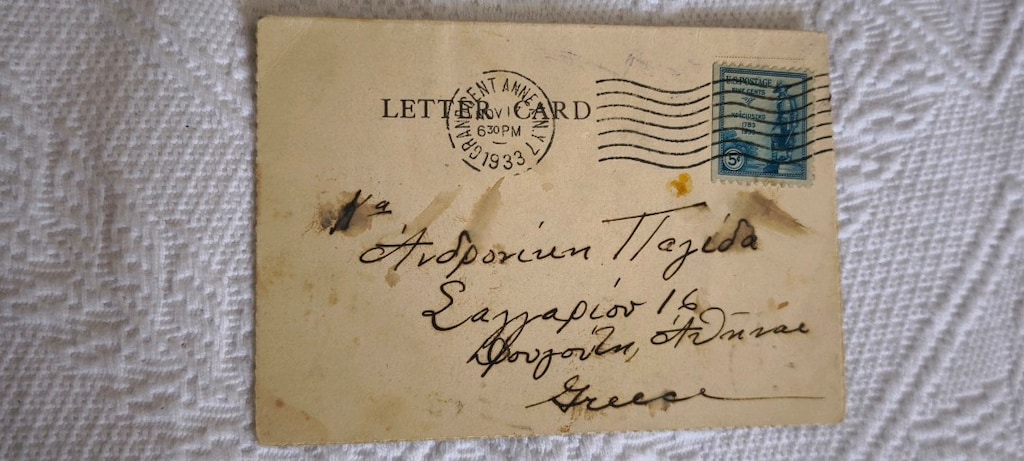 LETTER CARD
GRAND CENT ANNEX N.Y.
NOV 17
6 30 PM
1933
U.S. POSTAGE
FIVE CENTS
KOSCIUSZKO
1783
1933
5¢
Κα
Ἀνδρονίκη Παγίδα
Σαγγαρίου 16
Ἀθήναι
Greece